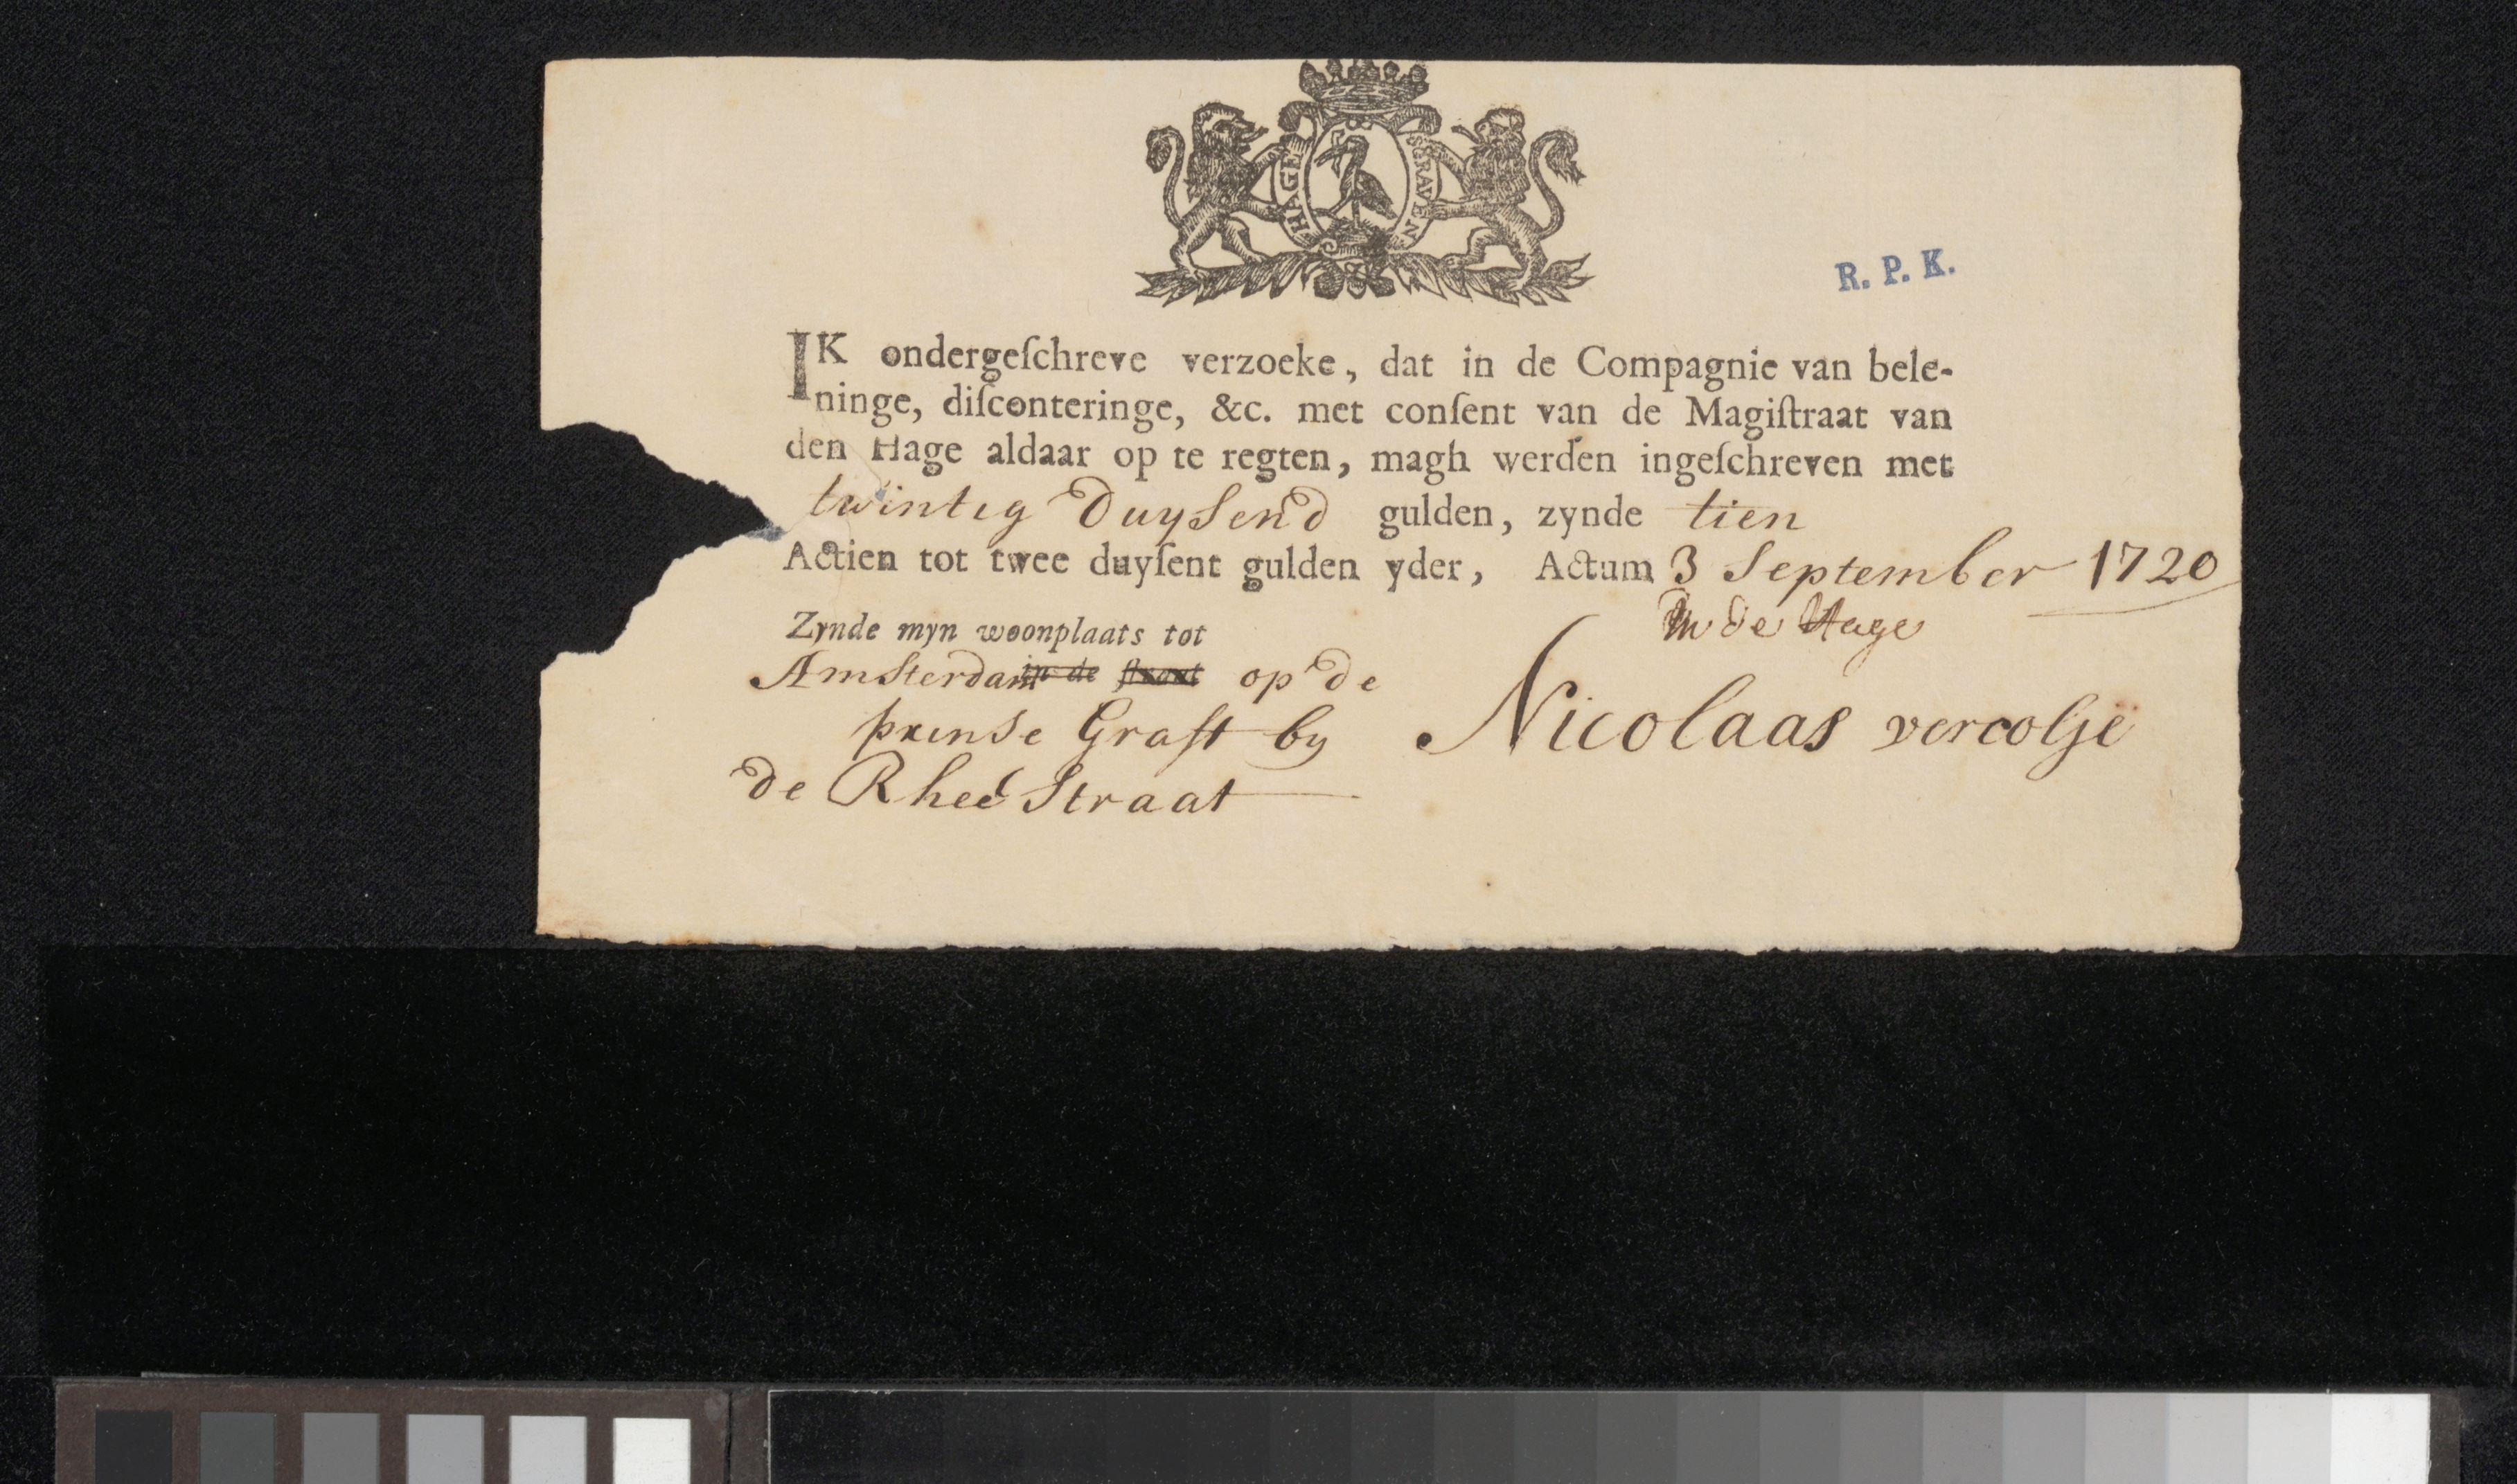 HAGE SGRAVEN
R. P. K.
IK ondergeſchreve verzoeke, dat in de Compagnie van bele-
ninge, diſconteringe, &c. met conſent van de Magiſtraat van
den Hage aldaar op te regten, magh werden ingeſchreven met
twintig Duysend gulden, zynde tien
Actien tot twee duyſent gulden yder, Actum 3 September 1720
In de Hage
Zynde myn woonplaats tot
Amsterdam in de ſtraat op de
prinse Graft by
Nicolaas vercolje
de Rheé Straat